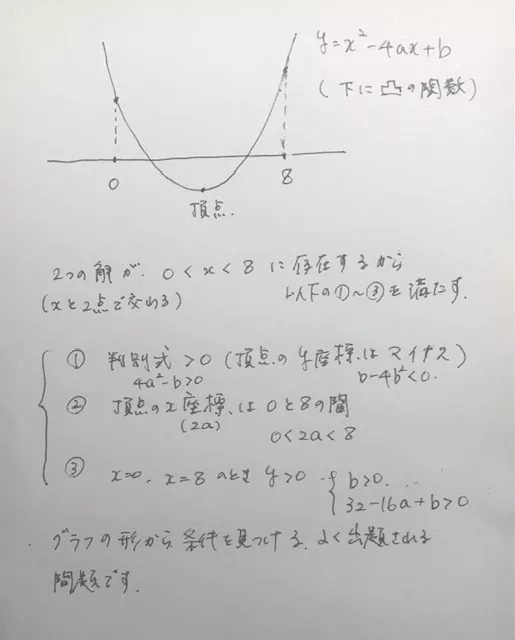 y=x²-4ax+b
(下に凸の関数)
0
8
頂点.
2つの解が、0<x<8に存在するから
(xと2点で交わる) 以下の①〜③を満たす.
① 判別式>0 (頂点のy座標はマイナス)
4a²-b>0 b-4b²<0.
② 頂点のx座標は0と8の間
(2a) 0<2a<8
③ x=0、x=8のときy>0 { b>0.
32-16a+b>0
グラフの形から条件を見つける、よく出題される
問題です.